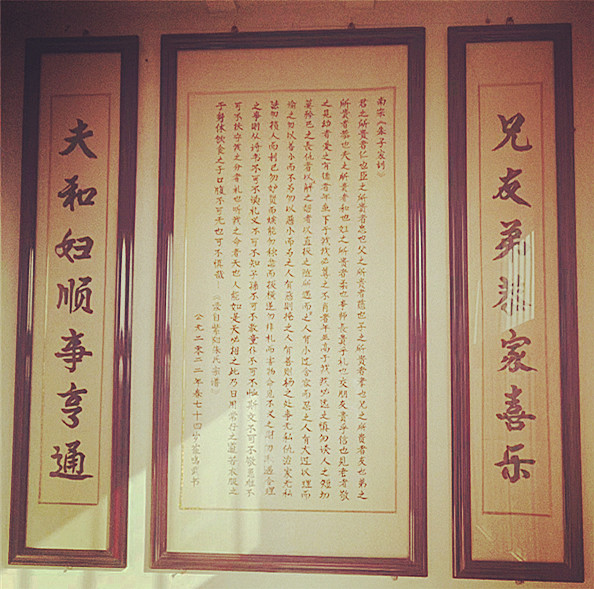 兄友弟恭家喜乐
南宋《朱子家训》
君之所贵者仁也臣之所贵者忠也父之所贵者慈也子之所贵者孝也兄之所贵者友也弟之
所贵者恭也夫之所贵者和也妇之所贵者柔也事师长贵乎礼也交朋友贵乎信也见老者敬
之见幼者爱之有德者年虽下于我我必尊之不肖者年虽高于我我必远之慎勿谈人之短切
莫矜己之长仇者以义解之怨者以直报之随所遇而安之人有小过含容而忍之人有大过以理而
喻之勿以善小而不为勿以恶小而为之人有恶则掩之人有善则扬之处世无私仇治家无私
法勿损人而利己勿妒贤而嫉能勿称忿而报横逆勿非礼而害物命见不义之财勿取遇合理
之事则从诗书不可不读礼义不可不知子孙不可不教童仆不可不恤斯文不可不敬患难不
可不扶守我之分者礼也听我之命者天也人能如是天必相之此乃日用常行之道若衣服之
于身体饮食之于口腹不可无也可不慎哉 《录自紫阳朱氏宗谱》
公元二零二二年春七十四岁书
夫和妇顺事亨通